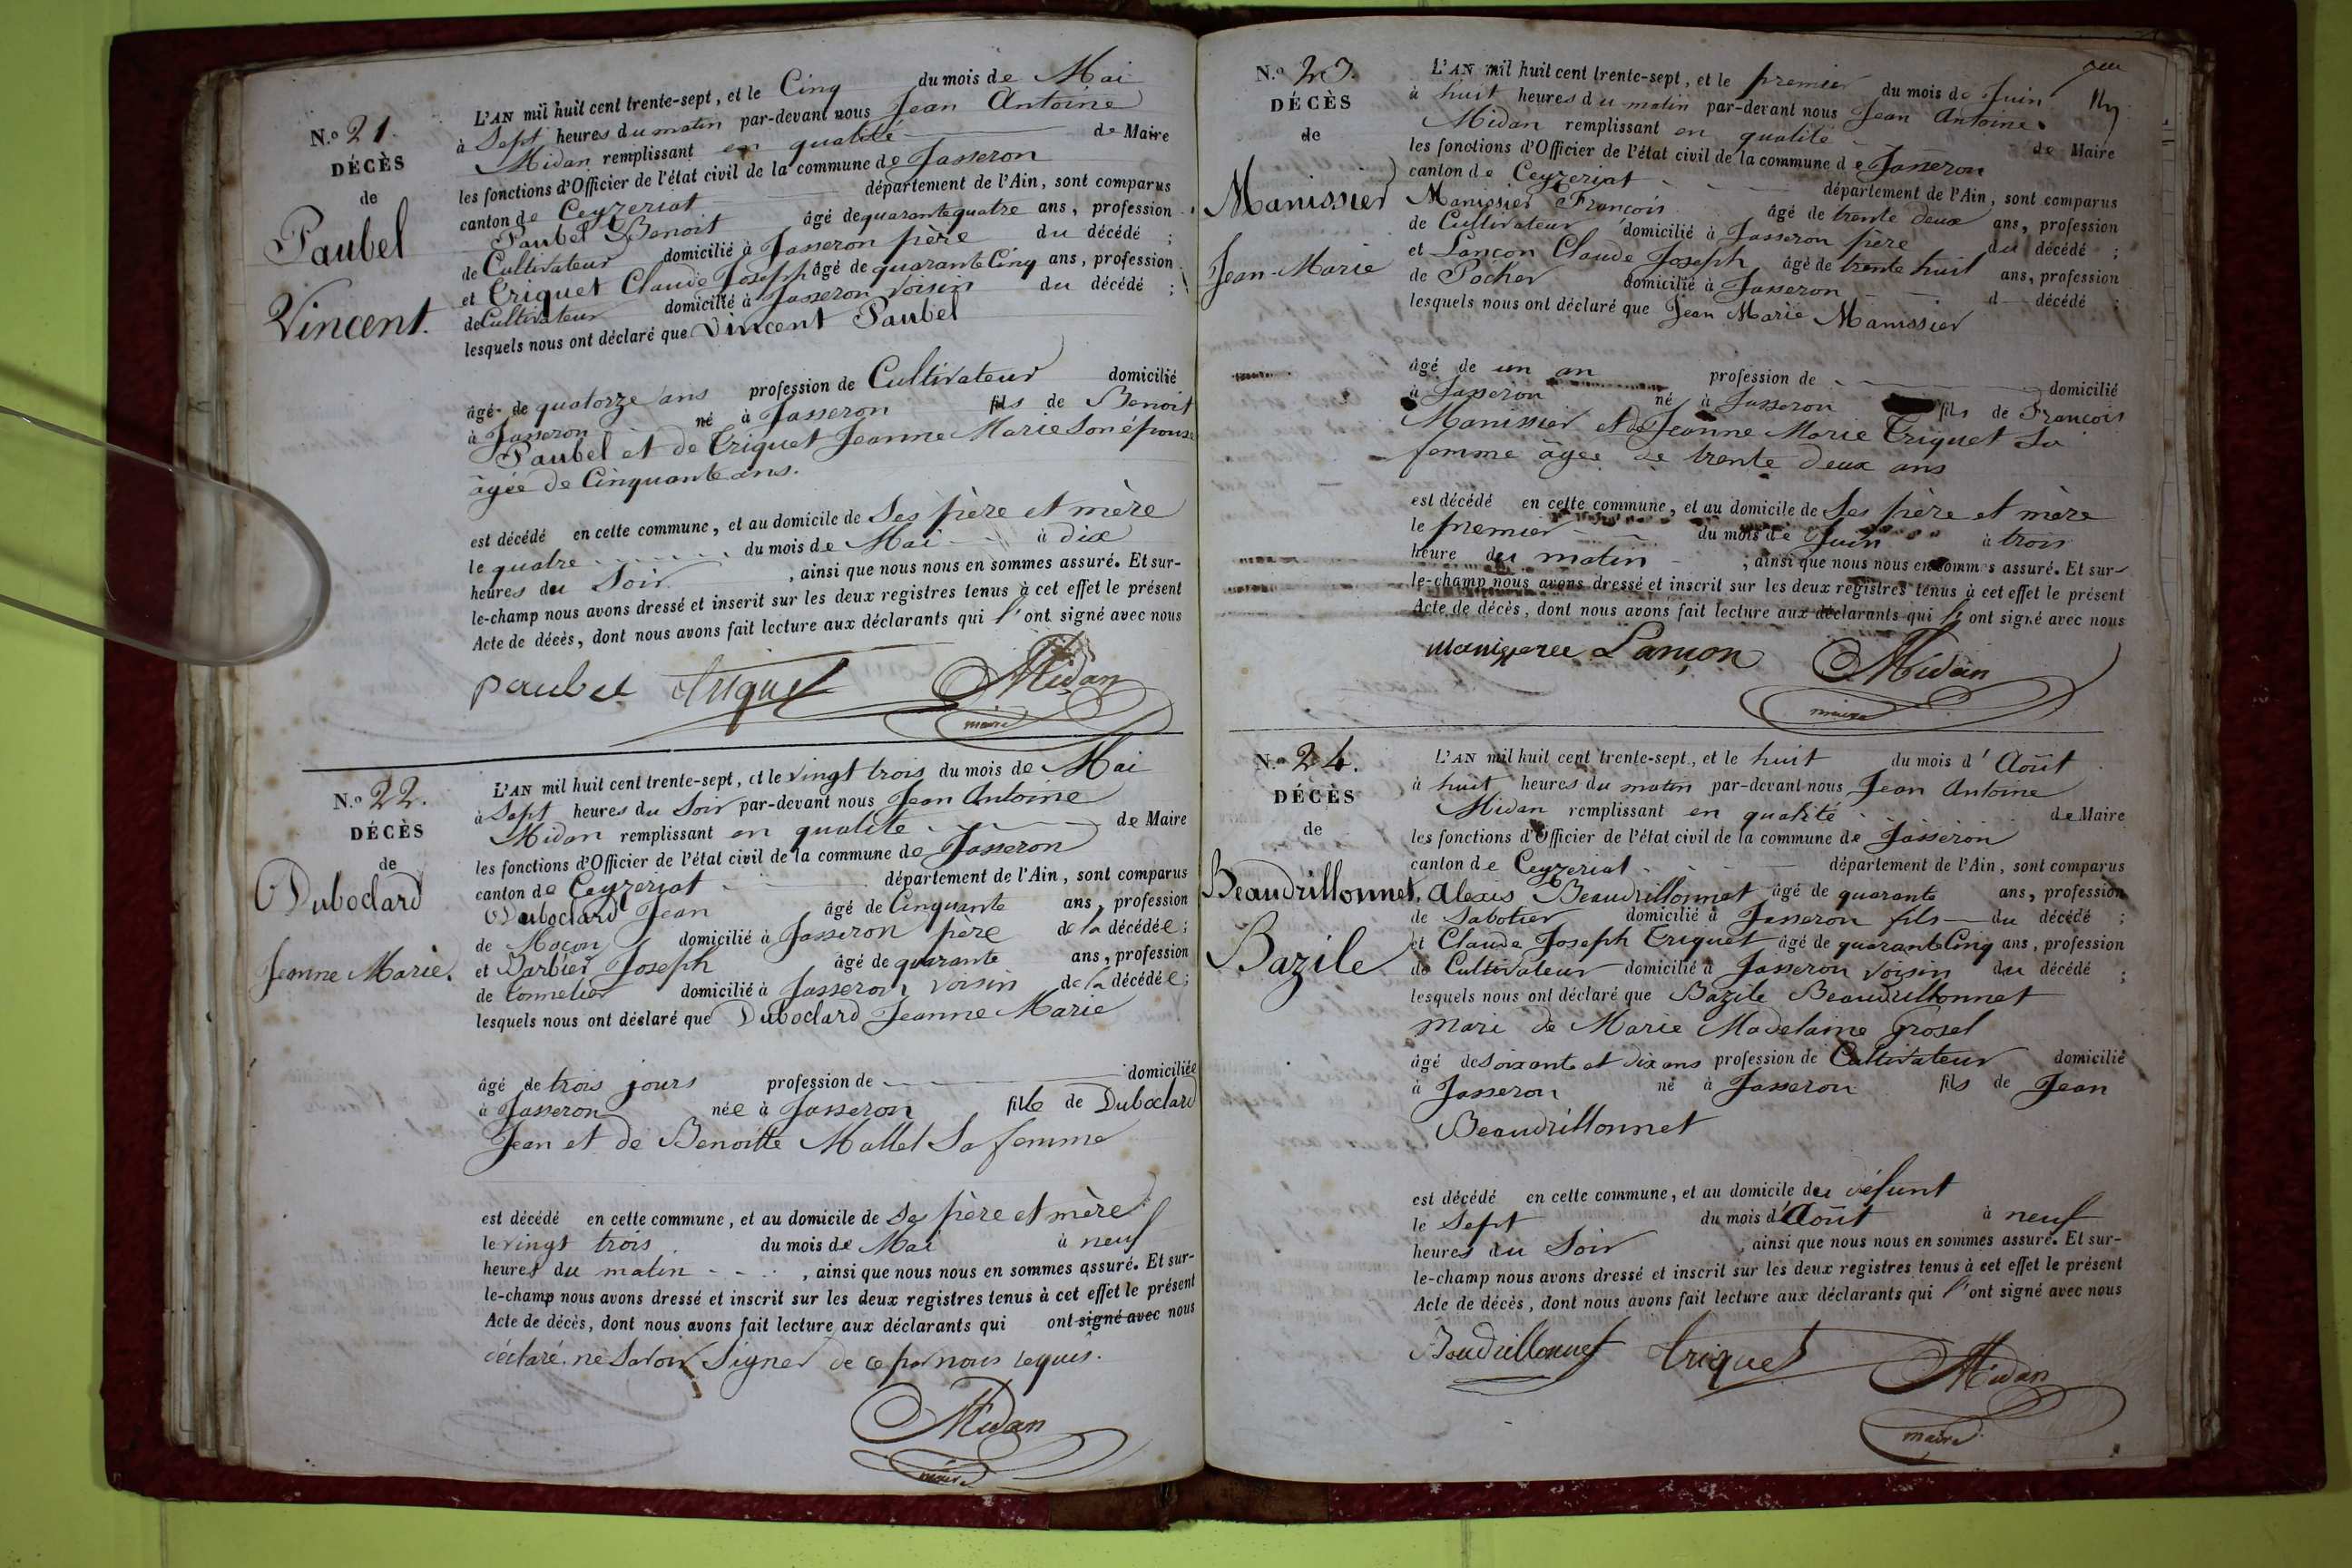 N.o 21.
DÉCÈS
de
Paubel
Vincent.
L'AN mil huit cent trente-sept, et le Cinq du mois de Mai
à Sept heures du matin par-devant nous Jean Antoine
Midan remplissant en qualité de Maire
les fonctions d'Officier de l'état civil de la commune de Jasseron
canton de Ceyzeriat département de l'Ain, sont comparus
Paubel Benoit âgé de quarante quatre ans, profession
de Cultivateur domicilié à Jasseron père du décédé ;
et Triquet Claude Joseph âgé de quarante Cinq ans, profession
de Cultivateur domicilié à Jasseron voisin du décédé ;
lesquels nous ont déclaré que Vincent Paubel
âgé de quatorze ans profession de Cultivateur domicilié
à Jasseron né à Jasseron fils de Benoit
Paubel et de Triquet Jeanne Marie Son épouse
âgée de Cinquante ans.
est décédé en cette commune, et au domicile de Ses père et mère
le quatre du mois de Mai à dix
heures du Soir , ainsi que nous nous en sommes assuré. Et sur-
le-champ nous avons dressé et inscrit sur les deux registres tenus à cet effet le présent
Acte de décès, dont nous avons fait lecture aux déclarants qui l'ont signé avec nous
paubel triquet Midan
maire
N.o 22.
DÉCÈS
de
Duboclard
Jeanne Marie.
L'AN mil huit cent trente-sept, et le vingt trois du mois de Mai
à Sept heures du Soir par-devant nous Jean Antoine
Midan remplissant en qualité de Maire
les fonctions d'Officier de l'état civil de la commune de Jasseron
canton de Ceyzeriat département de l'Ain, sont comparus
Duboclard Jean âgé de Cinquante ans, profession
de Maçon domicilié à Jasseron père de la décédée ;
et Barbier Joseph âgé de quarante ans, profession
de tonnelier domicilié à Jasseron voisin de la décédée ;
lesquels nous ont déclaré que Duboclard Jeanne Marie
âgé de trois jours profession de domiciliée
à Jasseron née à Jasseron fille de Duboclard
Jean et de Benoitte Mallet Sa femme
est décédé en cette commune, et au domicile de Ses père et mère
le vingt trois du mois de Mai à neuf
heures du matin , ainsi que nous nous en sommes assuré. Et sur-
le-champ nous avons dressé et inscrit sur les deux registres tenus à cet effet le présent
Acte de décès, dont nous avons fait lecture aux déclarants qui ont signé avec nous
déclaré ne Savoir Signer de ce par nous requis.
Midan
maire
N.o 23.
DÉCÈS
de
Manissier
Jean-Marie
L'AN mil huit cent trente-sept, et le premier du mois de Juin
à huit heures du matin par-devant nous Jean Antoine
Midan remplissant en qualité de Maire
les fonctions d'Officier de l'état civil de la commune de Jasseron
canton de Ceyzeriat département de l'Ain, sont comparus
Manissier François âgé de trente deux ans, profession
de Cultivateur domicilié à Jasseron père du décédé ;
et Lançon Claude Joseph âgé de trente huit ans, profession
de domicilié à Jasseron d décédé ;
lesquels nous ont déclaré que Jean Marie Manissier
âgé de un an profession de domicilié
à Jasseron né à Jasseron fils de François
Manissier et de Jeanne Marie Triquet Sa
femme âgée de trente deux ans
est décédé en cette commune, et au domicile de Ses père et mère
le premier du mois de Juin à trois
heure du matin ; ainsi que nous nous en sommes assuré. Et sur-
le-champ nous avons dressé et inscrit sur les deux registres tenus à cet effet le présent
Acte de décès, dont nous avons fait lecture aux déclarants qui l'ont signé avec nous
Lançon Midan
maire
N.o 24.
DÉCÈS
de
Beaudrillonnet.
Bazile
L'AN mil huit cent trente-sept, et le huit du mois d'Août
à huit heures du matin par-devant nous Jean Antoine
Midan remplissant en qualité de Maire
les fonctions d'Officier de l'état civil de la commune de Jasseron
canton de Ceyzeriat département de l'Ain, sont comparus
Alexis Beaudrillonnet âgé de quarante ans, profession
de Sabotier domicilié à Jasseron fils du décédé ;
et Claude Joseph Triquet âgé de quarante Cinq ans, profession
de Cultivateur domicilié à Jasseron voisin du décédé ;
lesquels nous ont déclaré que Bazile Beaudrillonnet
mari de Marie Madelaine Grosel
âgé de soixante et dix ans profession de Cultivateur domicilié
à Jasseron né à Jasseron fils de Jean
Beaudrillonnet
est décédé en cette commune, et au domicile du défunt
le Sept du mois d'Août à neuf
heures du Soir , ainsi que nous nous en sommes assuré. Et sur-
le-champ nous avons dressé et inscrit sur les deux registres tenus à cet effet le présent
Acte de décès, dont nous avons fait lecture aux déclarants qui l'ont signé avec nous
Boudrillonnet triquet Midan
maire